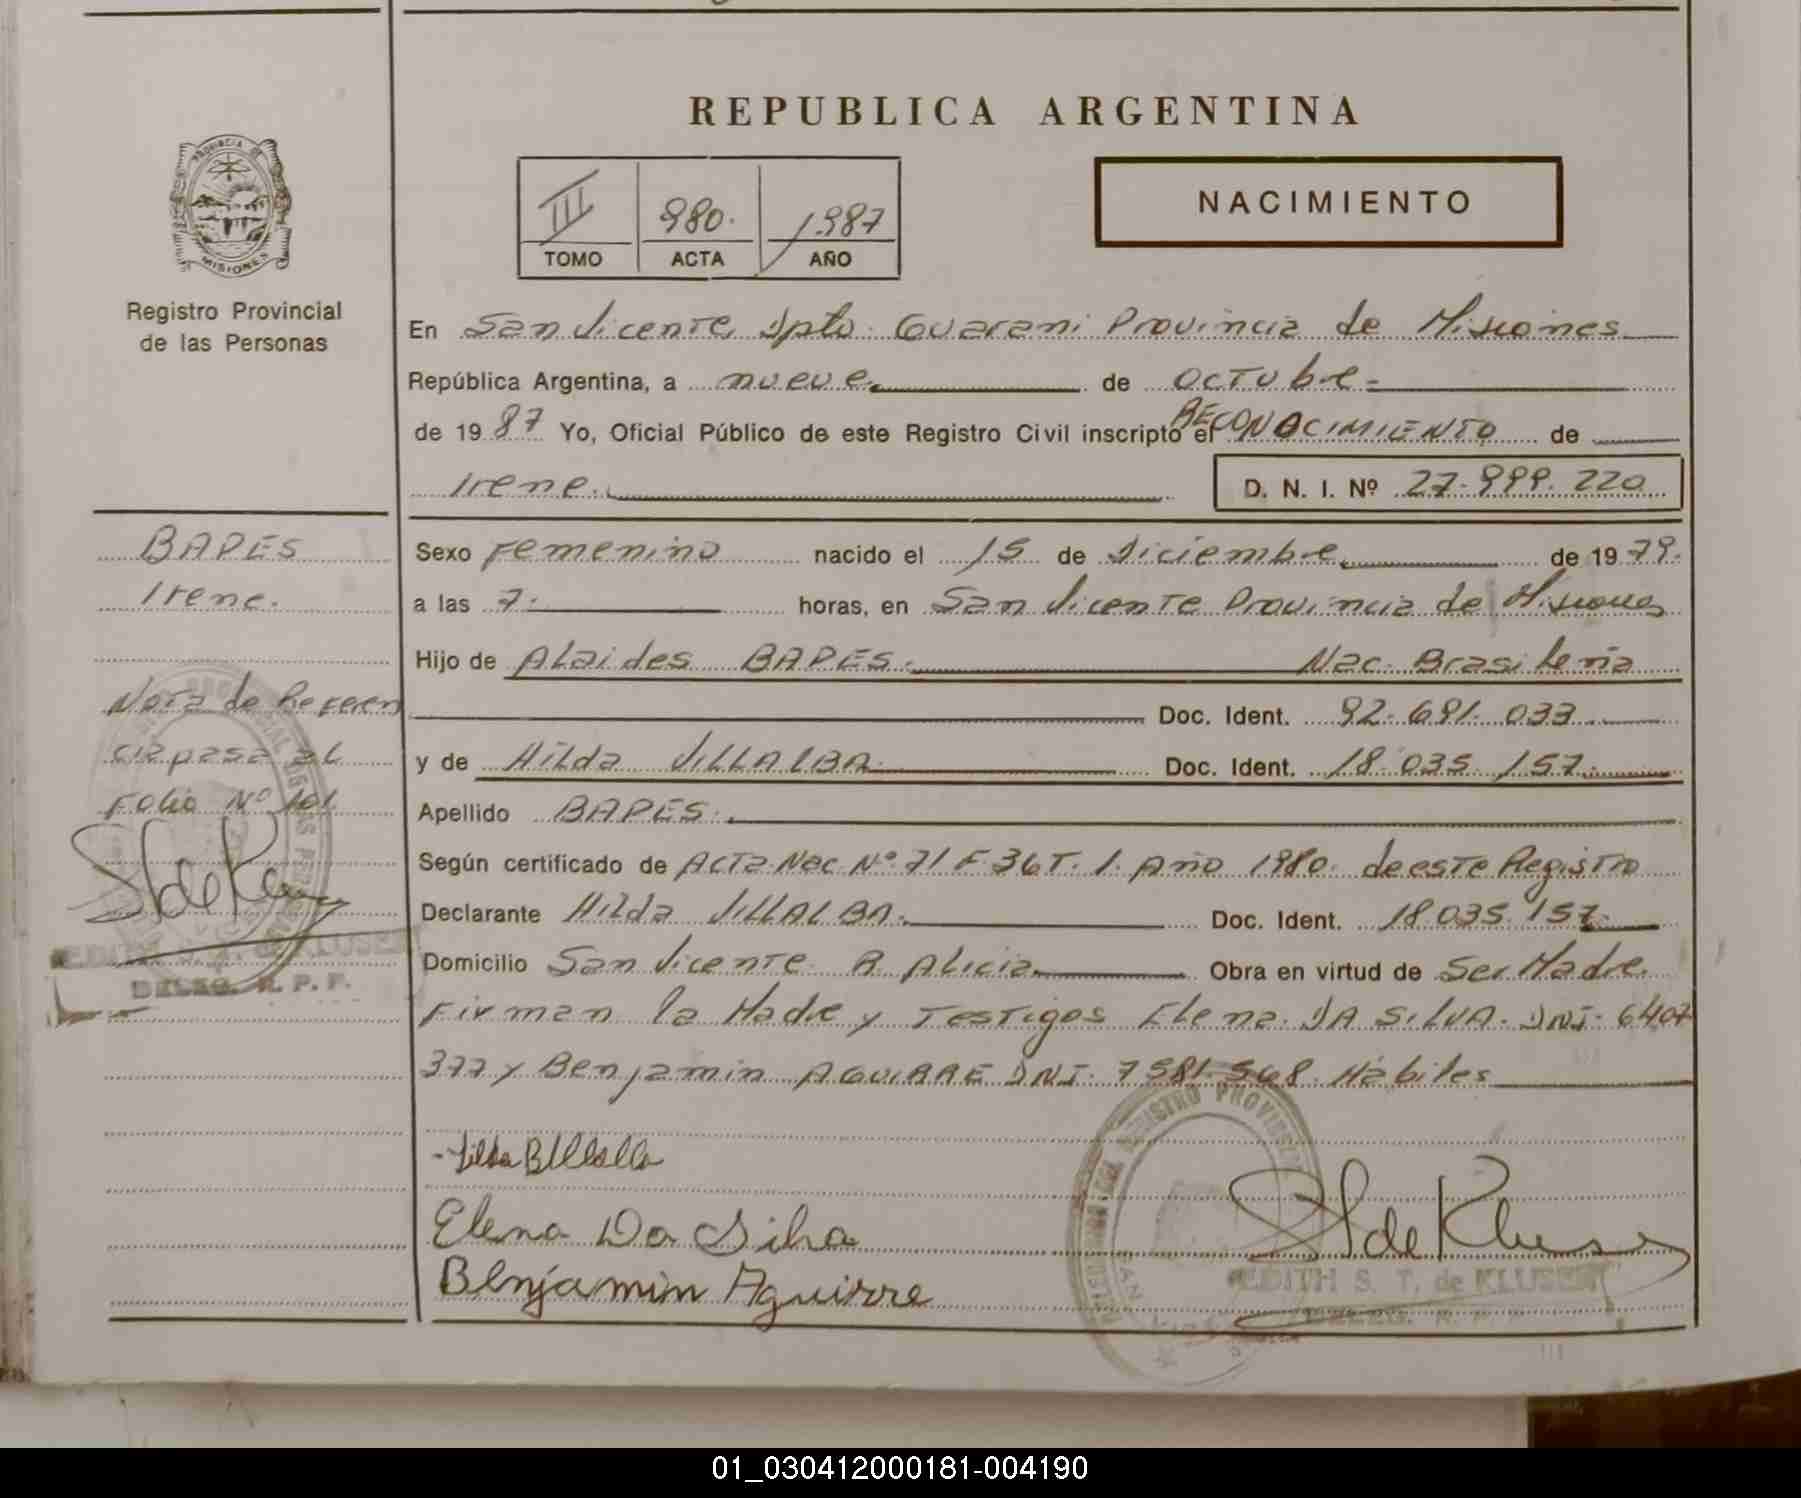 REPUBLICA ARGENTINA
PROVINCIA DE
MISIONES
Registro Provincial
de las Personas
III 980. 1987
TOMO ACTA AÑO
NACIMIENTO
En San Vicente, Dpto. Guarani Provincia de Misiones
República Argentina, a nueve de octubre
de 1987 Yo, Oficial Público de este Registro Civil inscripto el RECONOCIMIENTO de
Irene. D. N. I. Nº 27.999.220
BAPES
Irene.
Nota de Referen
cia pasa al
Folio Nº 101
EDITH S. T. de KLUSER
DELEG. R. P. P.
Sexo Femenino nacido el 15 de Diciembre de 1979.
a las 7. horas, en San Vicente Provincia de Misiones
Hijo de Alaides BAPES. Nac. Brasileña
Doc. Ident. 92.691.033
y de Hilda VILLALBA Doc. Ident. 18.035.157
Apellido BAPES.
Según certificado de Acta Nac. Nº 71 F. 36 T. 1. Año 1980. de este Registro
Declarante Hilda VILLALBA. Doc. Ident. 18.035.157
Domicilio San Vicente B. Alicia Obra en virtud de Ser Madre
Firman la Madre y Testigos Elena DA SILVA. DNI. 6407
377 y Benjamin AGUIRRE DNI. 7581.568. Hábiles
Elena Da Silva
Benjamin Aguirre
EDITH S. T. de KLUSER
DELEG. R. P. P.
01_030412000181-004190